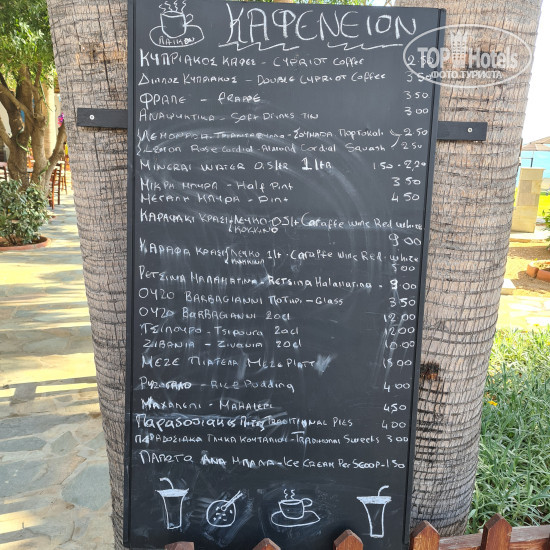 ΚΑΦΕΝΕΙΟΝ
ΚΥΠΡΙΑΚΟΣ ΚΑΦΕΣ - CYPRIOT COFFEE 2 50
ΔΙΠΛΟΣ ΚΥΠΡΙΑΚΟΣ - DOUBLE CYPRIOT COFFEE 3 50
ΦΡΑΠΕ - FRAPPE 3 50
ΑΝΑΨΥΚΤΙΚΑ - SOFT DRINKS TIN 3 00
ΠΟΡΤΟΚΑΛΙ 2 50
Rose Cordial - Almond Cordial Squash 2 50
MINERAL WATER 0.5 LTR 1 LTR 150 - 2,20
ΜΙΚΡΗ ΜΠΥΡΑ - Half Pint 3 50
ΜΕΓΑΛΗ ΜΠΥΡΑ - Pint 4 50
ΚΑΡΑΦΑΚΙ ΚΡΑΣΙ ΛΕΥΚΟ - 0.5 Lt Caraffe Wine Red White
ΚΟΚΚΙΝΟ 9 00
ΚΑΡΑΦΑ ΚΡΑΣΙ ΛΕΥΚΟ 1 Lt - Caraffe Wine Red - White
ΚΟΚΚΙΝΟ
ΡΕΤΣΙΝΑ ΜΑΛΑΜΑΤΙΝΑ - RETSINA Malamatina - 9 00
ΟΥΖΟ BARBAGIANNI ΠΟΤΗΡΙ - GLASS 3 50
ΟΥΖΟ BARBAGIANNI 20cl 12.00
ΤΣΙΠΟΥΡΟ - TSIPOURA 20cl 12.00
ΖΙΒΑΝΙΑ - ZIVANIA 20cl 10.00
ΜΕΖΕ ΠΙΑΤΕΛΑ MEZE PLATT
ΡΥΖΟΓΑΛΟ - RICE PUDDING 4 00
ΜΑΧΑΛΕΠΙ - MAHALEPI 4 50
ΠΑΡΑΔΟΣΙΑΚΕΣ ΠΙΤΕΣ TRADITIONAL PIES 4 00
ΠΑΡΑΔΟΣΙΑΚΑ ΓΛΥΚΑ ΚΟΥΤΑΛΙΟΥ - TRADITIONAL SWEETS 3 00
ΠΑΓΩΤΟ ΑΝΑ ΜΠΑΛΑ - ICE CREAM PER SCOOP - 1 50
TopHotels
ФОТО ТУРИСТА